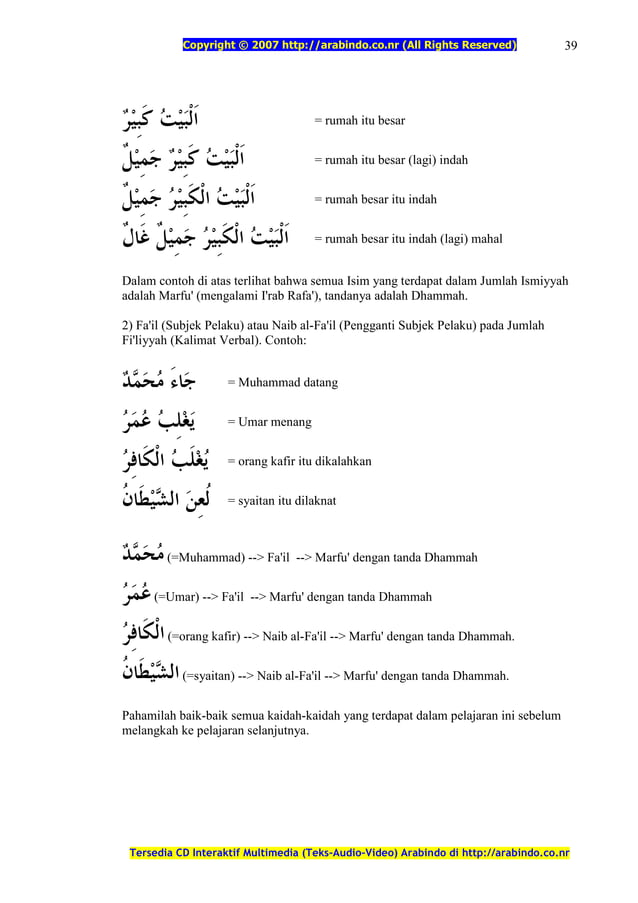 Copyright © 2007 http://arabindo.co.nr (All Rights Reserved)
39
اَلْبَيْتُ كَبِيْرٌ = rumah itu besar
اَلْبَيْتُ كَبِيْرٌ جَمِيْلٌ = rumah itu besar (lagi) indah
اَلْبَيْتُ الْكَبِيْرُ جَمِيْلٌ = rumah besar itu indah
اَلْبَيْتُ الْكَبِيْرُ جَمِيْلٌ غَالٌ = rumah besar itu indah (lagi) mahal
Dalam contoh di atas terlihat bahwa semua Isim yang terdapat dalam Jumlah Ismiyyah
adalah Marfu' (mengalami I'rab Rafa'), tandanya adalah Dhammah.
2) Fa'il (Subjek Pelaku) atau Naib al-Fa'il (Pengganti Subjek Pelaku) pada Jumlah
Fi'liyyah (Kalimat Verbal). Contoh:
جَاءَ مُحَمَّدٌ = Muhammad datang
يَغْلِبُ عُمَرُ = Umar menang
يُغْلَبُ الْكَافِرُ = orang kafir itu dikalahkan
لُعِنَ الشَّيْطَانُ = syaitan itu dilaknat
مُحَمَّدٌ (=Muhammad) --> Fa'il --> Marfu' dengan tanda Dhammah
عُمَرُ (=Umar) --> Fa'il --> Marfu' dengan tanda Dhammah
الْكَافِرُ (=orang kafir) --> Naib al-Fa'il --> Marfu' dengan tanda Dhammah.
الشَّيْطَانُ (=syaitan) --> Naib al-Fa'il --> Marfu' dengan tanda Dhammah.
Pahamilah baik-baik semua kaidah-kaidah yang terdapat dalam pelajaran ini sebelum
melangkah ke pelajaran selanjutnya.
Tersedia CD Interaktif Multimedia (Teks-Audio-Video) Arabindo di http://arabindo.co.nr